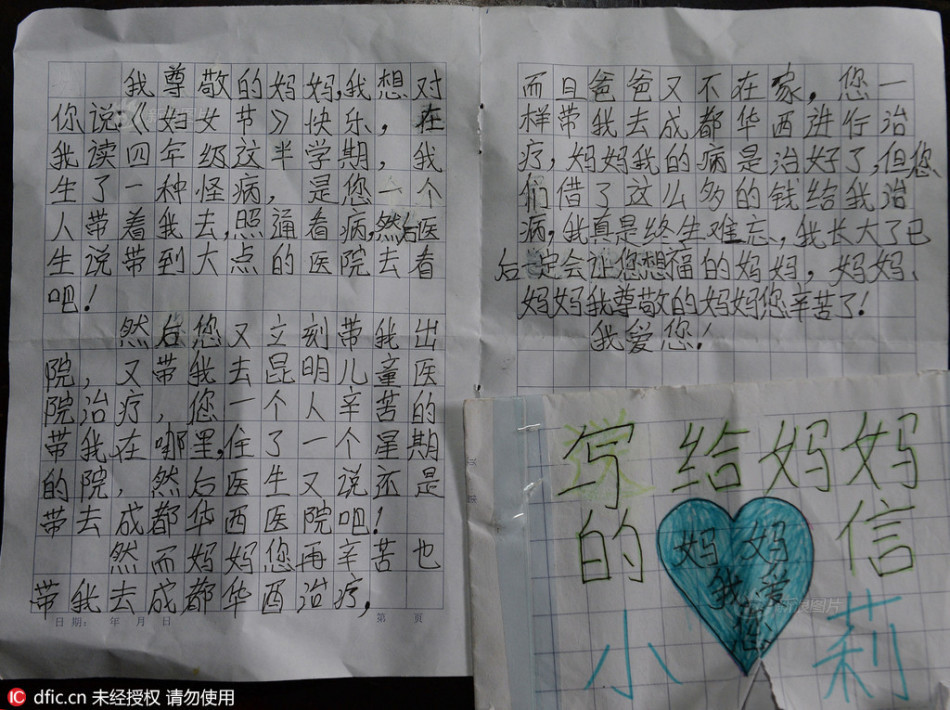 我尊敬的妈妈,我想对
你说:《妇女节》快乐，在
我读四年级这半学期，我
生了一种怪病，是您一个
人带着我去,照通看病,然后医
生说带到大点的医院去看
吧!
然后您又立刻带我出
院，又带我去昆明儿童医
院治疗，您一个人辛苦的
带我在哪里,住了一个星期
的院，然后医生又说还是
带去成都华西医院吧!
然而妈妈您再辛苦也
带我去成都华西治疗，
日期： 年 月 日 第 页
而且爸爸又不在家，您一
样带我去成都华西进行治
疗，妈妈我的病是治好了,但您
们借了这么多的钱给我治
病,我真是终生难忘，我长大了已
后一定会让您想福的妈妈，妈妈、
妈妈我尊敬的妈妈您辛苦了!
我爱您!
写给妈妈
的 信
妈妈
我爱
您
小 莉
IC dfic.cn 未经授权 请勿使用